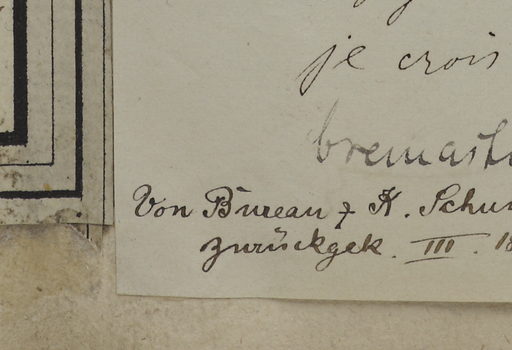 je crois
bremast
Von Bureau f. K. Schu
zurückgek. III. 18